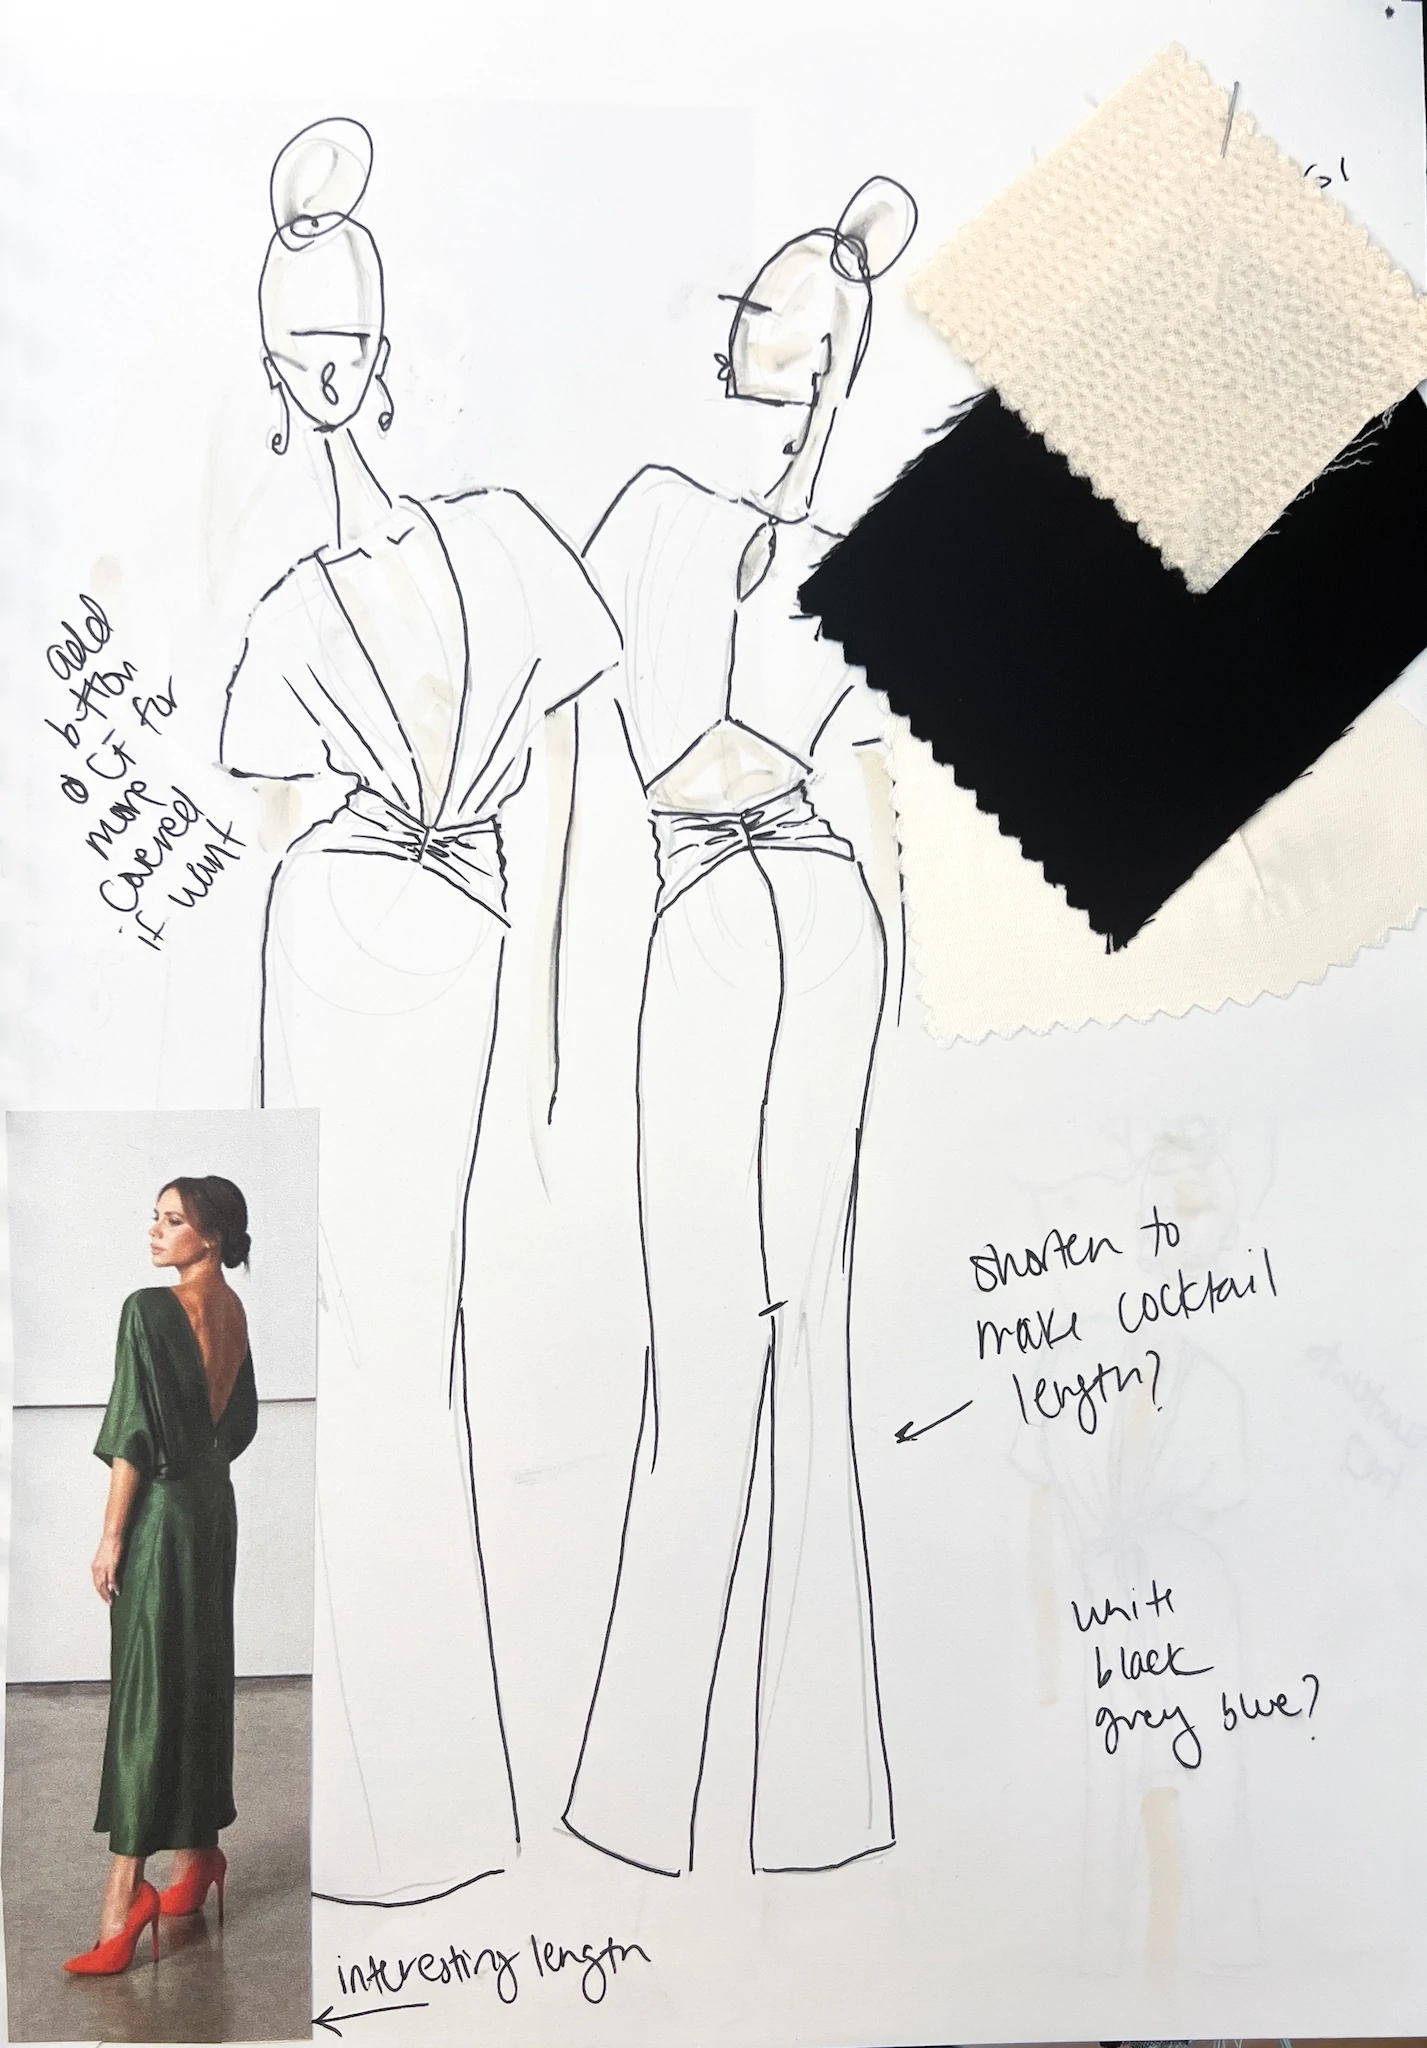 add
button
@ CF for
more
covered
if want
shorten to
make cocktail
length?
white
black
grey blue?
interesting length